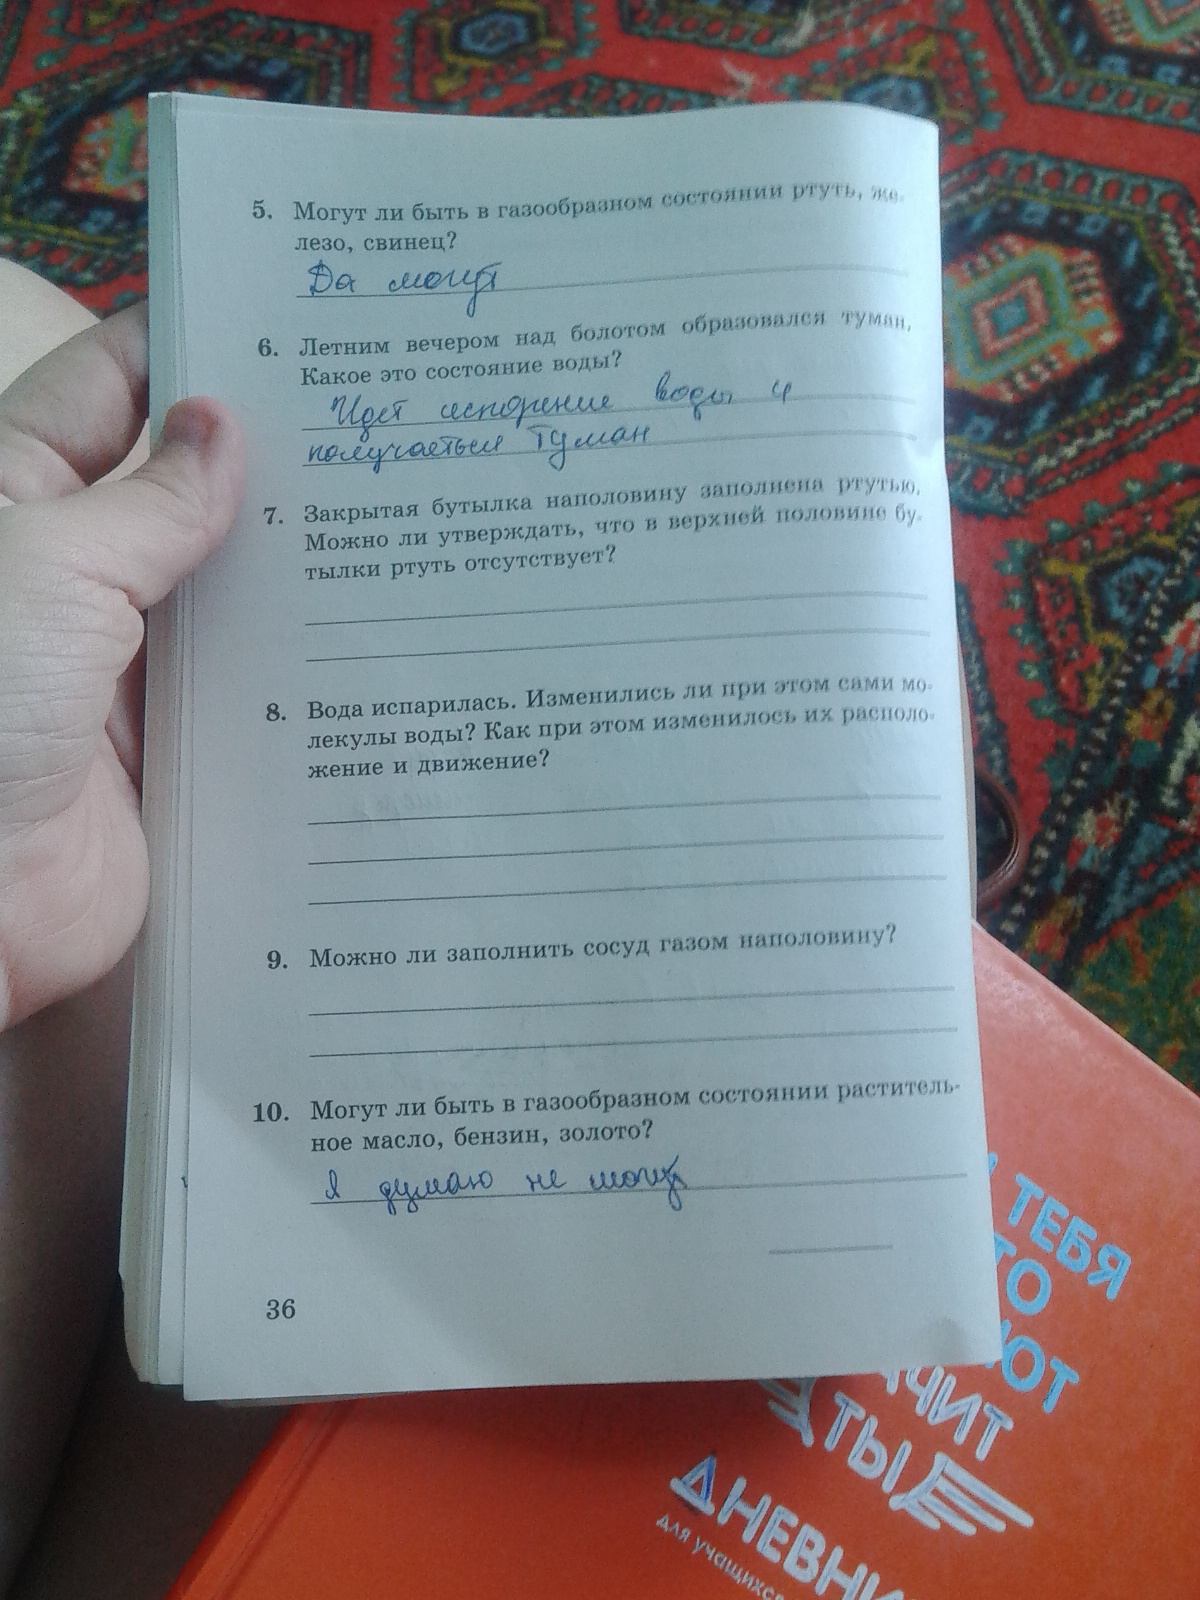 5. Могут ли быть в газообразном состоянии ртуть, же-
лезо, свинец?
Да могут
6. Летним вечером над болотом образовался туман.
Какое это состояние воды?
Идет испорение воды и
получаеться туман
7. Закрытая бутылка наполовину заполнена ртутью.
Можно ли утверждать, что в верхней половине бу-
тылки ртуть отсутствует?
8. Вода испарилась. Изменились ли при этом сами мо-
лекулы воды? Как при этом изменилось их располо-
жение и движение?
9. Можно ли заполнить сосуд газом наполовину?
10. Могут ли быть в газообразном состоянии раститель-
ное масло, бензин, золото?
Я думаю не могут
36
ТЕБЯ
ТЫ
ДНЕВНИ
для учащихся